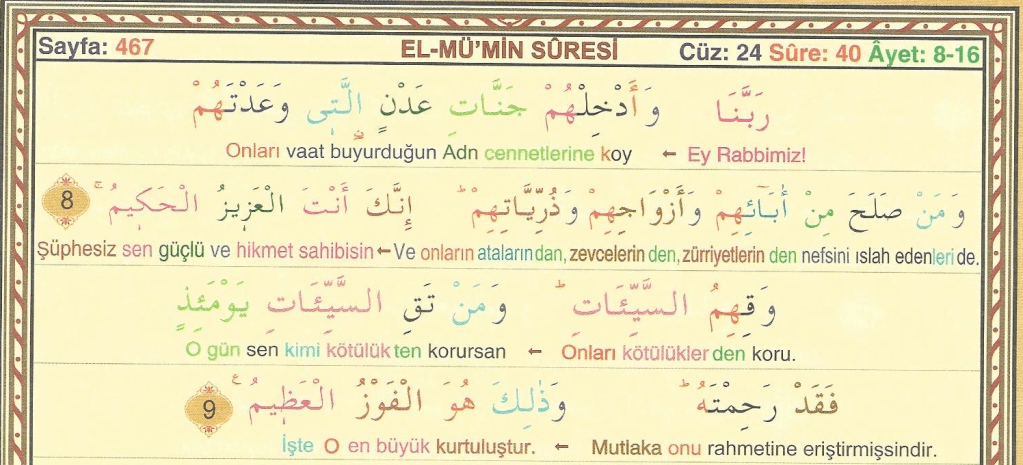 Sayfa: 467 EL-MÜ’MİN SÛRESİ Cüz: 24 Sûre: 40 Âyet: 8-16
رَبَّنَا وَأَدْخِلْهُمْ جَنَّاتِ عَدْنٍ الَّتِى وَعَدْتَهُمْ
Onları vaat buyurduğun Adn cennetlerine koy ← Ey Rabbimiz!
وَمَنْ صَلَحَ مِنْ أٰبَٓائِهِمْ وَأَزْوَاجِهِمْ وَذُرِّيَّاتِهِمْ ۜ إِنَّكَ أَنْتَ الْعَزِيزُ الْحَكِيمُ ۙ 8
Şüphesiz sen güçlü ve hikmet sahibisin ← Ve onların atalarından, zevcelerin den, zürriyetlerin den nefsini ıslah edenleri de.
وَقِهِمُ السَّيِّئَاتِ ۜ وَمَنْ تَقِ السَّيِّئَاتِ يَوْمَئِذٍ
O gün sen kimi kötülük ten korursan ← Onları kötülükler den koru.
فَقَدْ رَحِمْتَهُ ۜ وَذٰلِكَ هُوَ الْفَوْزُ الْعَظِيمُ ع 9
İşte O en büyük kurtuluştur. ← Mutlaka onu rahmetine eriştirmişsindir.